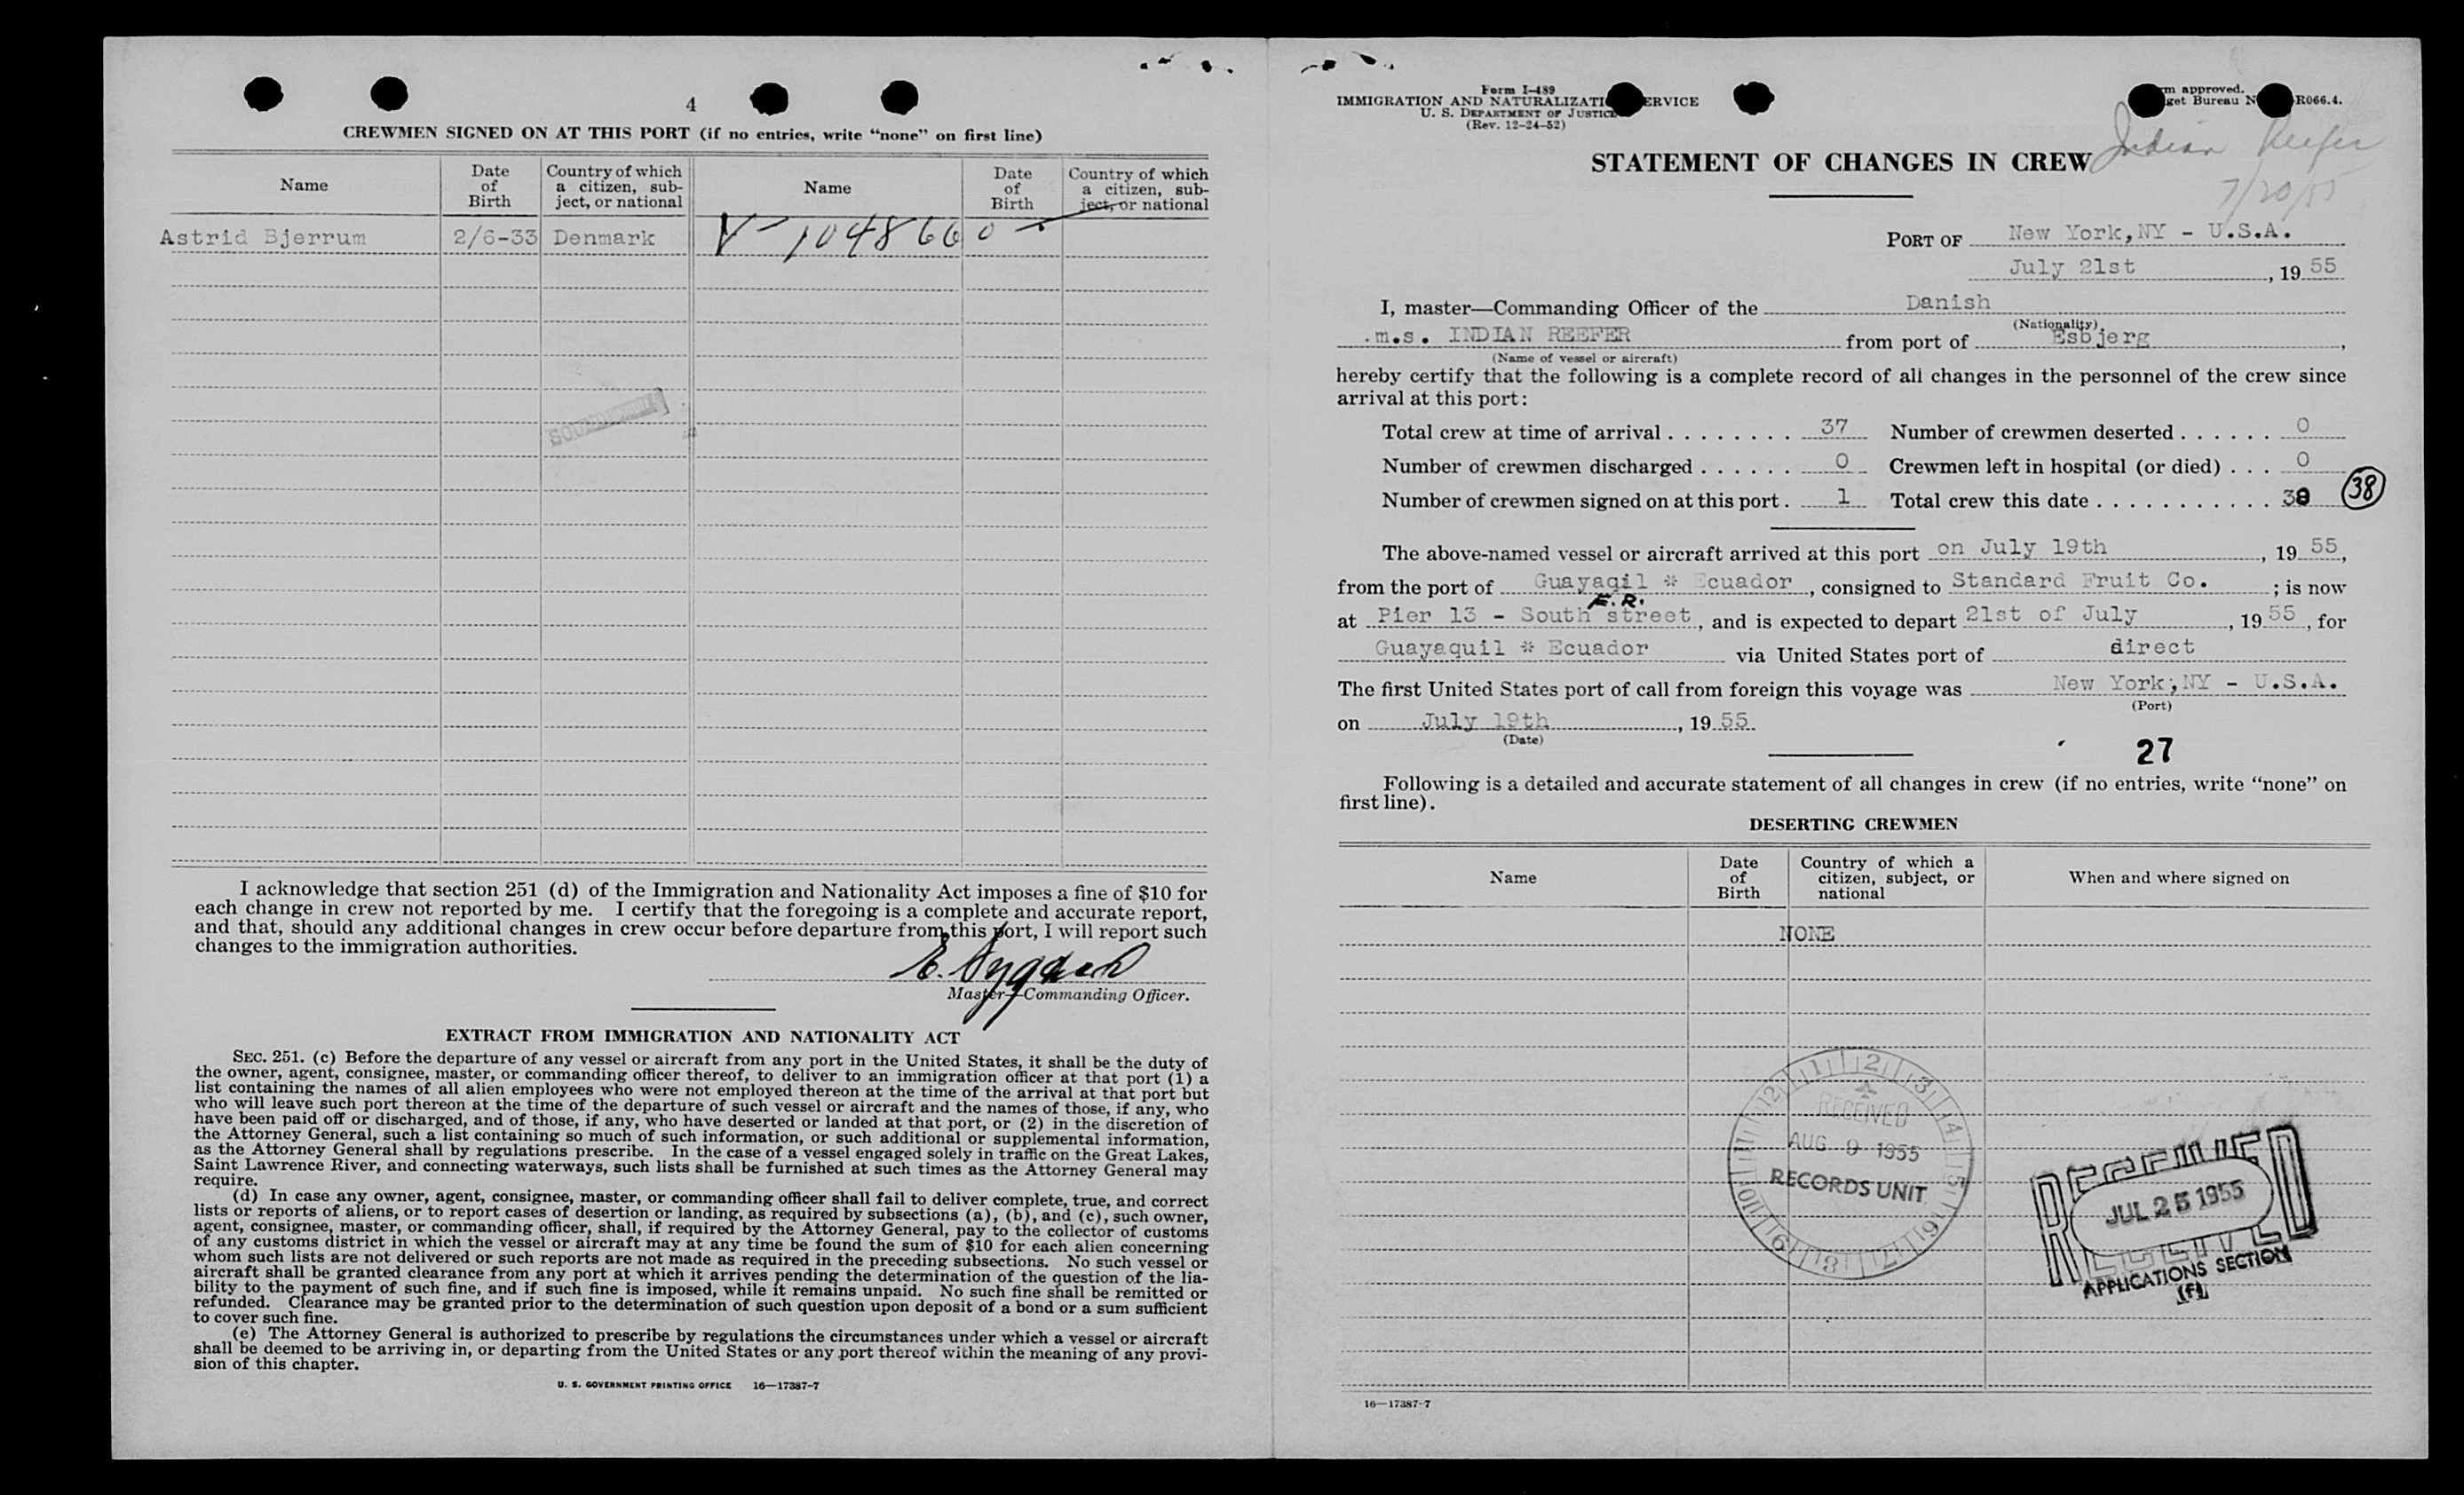 4
CREWMEN SIGNED ON AT THIS PORT (if no entries, write “none” on first line)
Name
Date of Birth
Country of which a citizen, sub-ject, or national
Name
Date of Birth
Country of which a citizen, sub-ject, or national
Astrid Bjerrum 2/6-33 Denmark V-1048660
I acknowledge that section 251 (d) of the Immigration and Nationality Act imposes a fine of $10 for
each change in crew not reported by me. I certify that the foregoing is a complete and accurate report,
and that, should any additional changes in crew occur before departure from this port, I will report such
changes to the immigration authorities.
E.
Master—Commanding Officer.
EXTRACT FROM IMMIGRATION AND NATIONALITY ACT
SEC. 251. (c) Before the departure of any vessel or aircraft from any port in the United States, it shall be the duty of
the owner, agent, consignee, master, or commanding officer thereof, to deliver to an immigration officer at that port (1) a
list containing the names of all alien employees who were not employed thereon at the time of the arrival at that port but
who will leave such port thereon at the time of the departure of such vessel or aircraft and the names of those, if any, who
have been paid off or discharged, and of those, if any, who have deserted or landed at that port, or (2) in the discretion of
the Attorney General, such a list containing so much of such information, or such additional or supplemental information,
as the Attorney General shall by regulations prescribe. In the case of a vessel engaged solely in traffic on the Great Lakes,
Saint Lawrence River, and connecting waterways, such lists shall be furnished at such times as the Attorney General may
require.
(d) In case any owner, agent, consignee, master, or commanding officer shall fail to deliver complete, true, and correct
lists or reports of aliens, or to report cases of desertion or landing, as required by subsections (a), (b), and (c), such owner,
agent, consignee, master, or commanding officer, shall, if required by the Attorney General, pay to the collector of customs
of any customs district in which the vessel or aircraft may at any time be found the sum of $10 for each alien concerning
whom such lists are not delivered or such reports are not made as required in the preceding subsections. No such vessel or
aircraft shall be granted clearance from any port at which it arrives pending the determination of the question of the lia-
bility to the payment of such fine, and if such fine is imposed, while it remains unpaid. No such fine shall be remitted or
refunded. Clearance may be granted prior to the determination of such question upon deposit of a bond or a sum sufficient
to cover such fine.
(e) The Attorney General is authorized to prescribe by regulations the circumstances under which a vessel or aircraft
shall be deemed to be arriving in, or departing from the United States or any port thereof within the meaning of any provi-
sion of this chapter.
U. S. GOVERNMENT PRINTING OFFICE 16—17387-7
Form I-489
IMMIGRATION AND NATURALIZATI ERVICE
U. S. DEPARTMENT OF JUSTICE
(Rev. 12-24-52)
m approved.
get Bureau N R066.4.
Indian Reefer
7/20/55
STATEMENT OF CHANGES IN CREW
PORT OF New York,NY - U.S.A.
July 21st, 19 55
I, master—Commanding Officer of the Danish
(Nationality)
m.s. INDIAN REEFER from port of Esbjerg,
(Name of vessel or aircraft)
hereby certify that the following is a complete record of all changes in the personnel of the crew since
arrival at this port:
Total crew at time of arrival . . . . . . . . 37 Number of crewmen deserted . . . . . . 0
Number of crewmen discharged . . . . . . 0 Crewmen left in hospital (or died) . . . 0
Number of crewmen signed on at this port . 1 Total crew this date . . . . . . . . . . . 38 (38)
The above-named vessel or aircraft arrived at this port on July 19th, 19 55,
from the port of Guayaqil * Ecuador, consigned to Standard Fruit Co. ; is now
E.R.
at Pier 13 - South street, and is expected to depart 21st of July, 19 55, for
Guayaquil * Ecuador via United States port of direct
The first United States port of call from foreign this voyage was New York,NY - U.S.A.
(Port)
on July 19th, 19 55.
(Date)
27
Following is a detailed and accurate statement of all changes in crew (if no entries, write “none” on
first line).
DESERTING CREWMEN
Name
Date of Birth
Country of which a citizen, subject, or national
When and where signed on
NONE
12 1 2 3 4 5 6 7 8 9 10 11
A
RECEIVED
AUG 9 1955
RECORDS UNIT
RECEIVED
JUL 25 1955
APPLICATIONS SECTION
(F)
16—17387-7